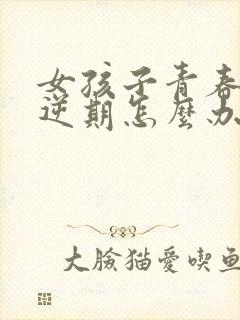 女孩子青春
逆期怎麼办
大臉猫愛喫鱼